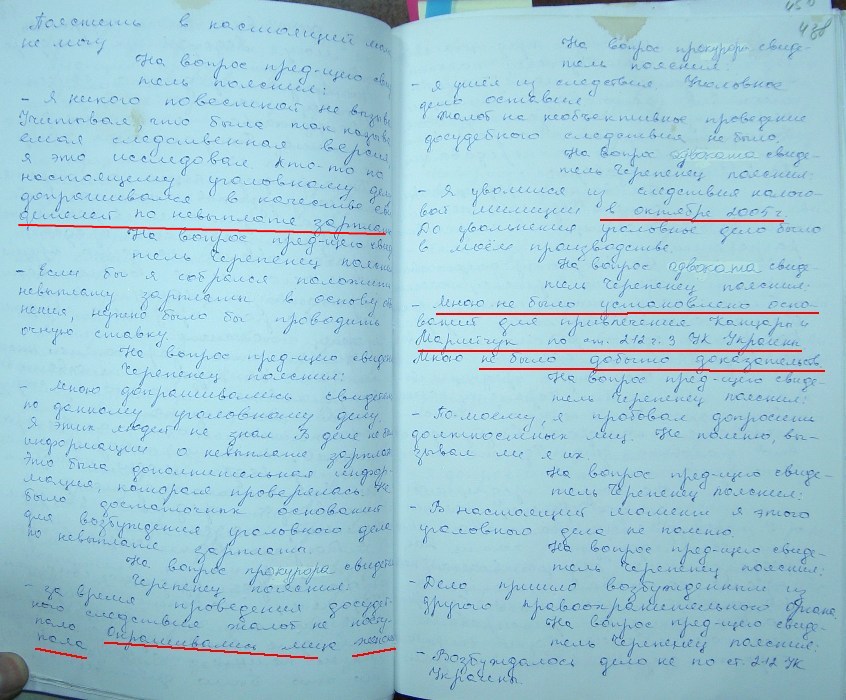 Пояснить в настоящий мом
не могу
На вопрос пред-щего сви
тель пояснил:
- Я никого повесткой не вызыва
Учитывая, что была так называ
емая следственная версия,
я это исследовал кто-то по
настоящему уголовному делу
допрашивался в качестве сви
детелей по невыплате зарплат
На вопрос пред-щего свид
тель Черепенец поясни
- Если бы я собрался положить
невыплату зарплаты в основу об
нения, нужно было бы проводить
очную ставку.
На вопрос пред-щего свидет
Черепенец пояснил:
- Мною допрашивались свидетел
по данному уголовному делу.
Я этих людей не знал. В деле не бы
информации о невыплате зарплат
Это была дополнительная инфор-
мация, которая проверялась. Не
было достаточных оснований
для возбуждения уголовного дела
по невыплате зарплаты.
На вопрос прокурора свидете
Черепенец пояснил:
- за время проведения досудеб-
ного следствия жалоб не посту-
пало. Опрашивались лица женско
пола
438
На вопрос прокурора свиде-
тель пояснил
- Я ушёл из следствия. Уголовное
дело оставил.
Жалоб на необъективное проведение
досудебного следствия не было.
На вопрос адвоката свиде-
тель Черепенец пояснил:
- Я уволился из следствия налого-
вой милиции в октябре 2005 г.
До увольнения уголовное дело было
в моём производстве.
На вопрос адвоката свиде-
тель Черепенец пояснил:
- Мною не было установлено осно-
ваний для привлечения Канцары и
по ст. 212 ч. 3 УК Украины
Мною не было добыто доказательств
На вопрос пред-щего свиде-
тель Черепенец пояснил:
- По-моему, я пробовал допросить
должностных лиц. Не помню, вы-
зывал ли я их
На вопрос пред-щего свиде-
тель Черепенец пояснил:
- В настоящий момент я этого
уголовного дела не помню.
На вопрос пред-щего свиде-
тель Черепенец пояснил:
- Дело пришло возбужденным из
другого правоохранительного органа.
На вопрос пред-щего свиде-
тель Черепенец пояснил:
- Возбуждалось дело не по ст. 212 УК
Украины.